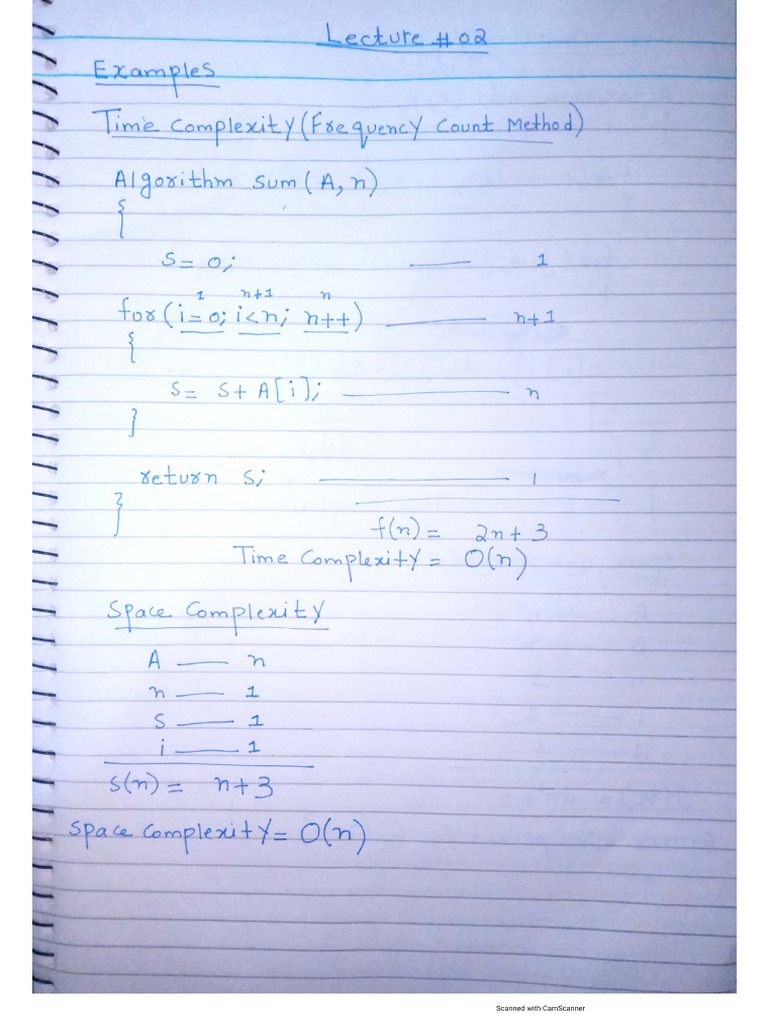 Lecture #02
Examples
Time complexity (Frequency Count Method)
Algorithm sum(A, n)
{
S = 0; —— 1
1 n+1 n
for(i=0; i<n; n++) —— n+1
{
S = S + A[i]; —— n
}
return s; —— 1
}
f(n) = 2n+3
Time Complexity = O(n)
Space Complexity
A —— n
n —— 1
S —— 1
i —— 1
S(n) = n+3
Space Complexity = O(n)
Scanned with CamScanner